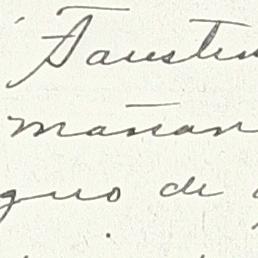 Faustin
mañan
gno de